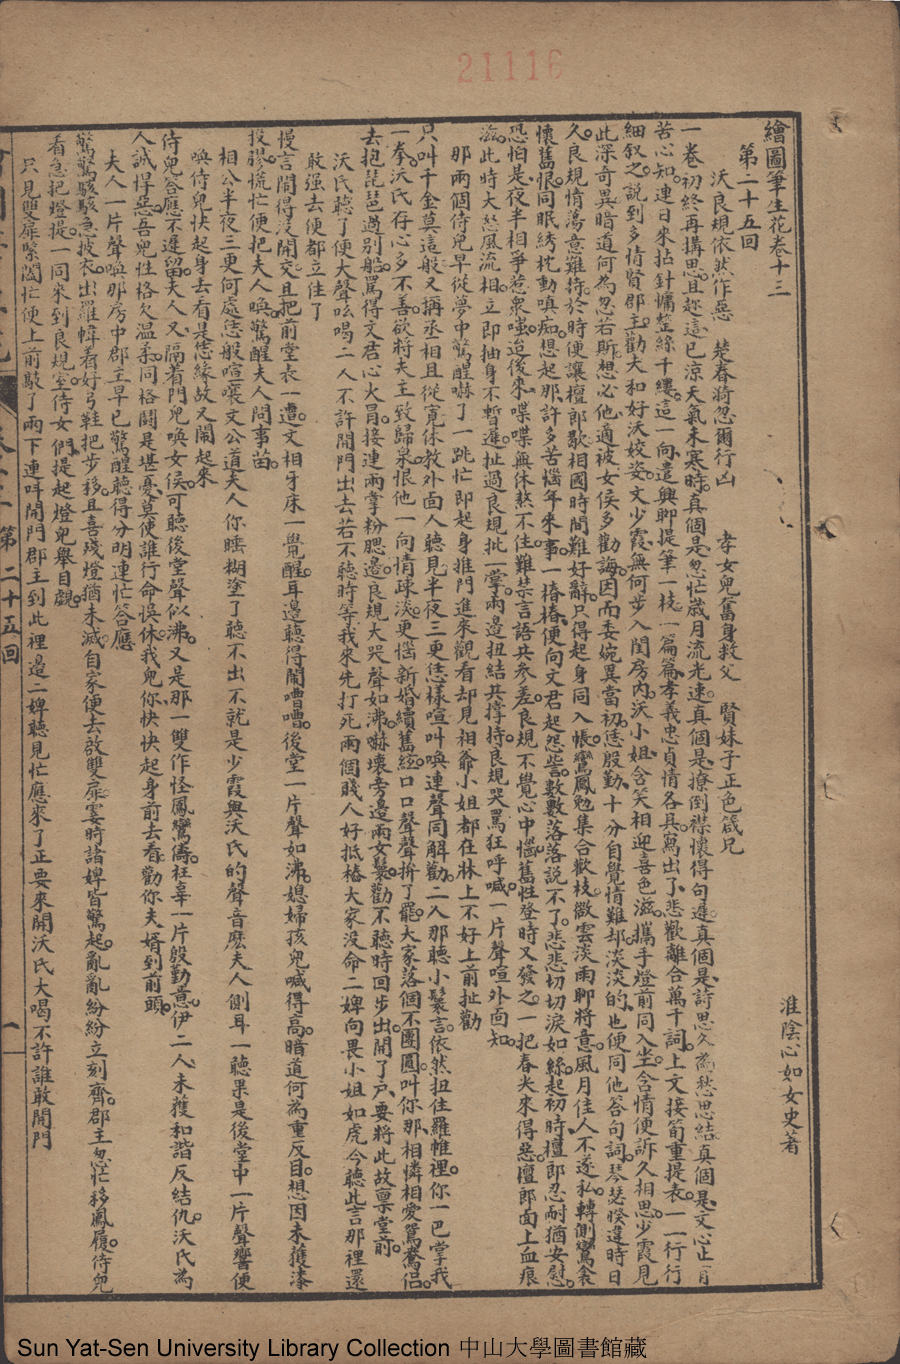 21116
繪圖筆生花卷十三
第二十五回 淮陰心如女史著
沃良規依然作惡 楚春漪忽爾行凶 孝女兒奮身救父 賢妹子正色箴兄
一卷初終再搆思且趁這已涼天氣未寒時真個是忽忙歲月流光速真個是撩倒襟懷得句遲真個是詩思久為愁思結真個是文心止
苦心知連日來拈針慵整綠千縷這一向遣興聊提筆一枝一篇篇孝義忠貞情各具寫出了悲歡離合萬千詞上文接筍重提表一一行行
細叙之說到多情賢郡主勸夫和好沃姣姿文少霞無何步入閨房內沃小姐含笑相迎喜色滋攜手燈前同入坐含情便訴久相思少霞見
此深奇異暗道何為忽若斯想必他適被女侯多勸誨因而委婉異當初恁殷勤十分自覺情難却淡淡的也便同他答句詞琴瑟暌違時日
久良規情蕩意難持於時便讓檀郎歇相國時間難好辭只得起身同入帳鸞鳳勉集合歡枝微雲淡雨聊將意風月佳人不遂私轉側鸞衾
懷舊恨同眠綉枕動嗔痴想起那許多苦惱年來事一樁樁便向文君起怨訾數數落落說不了悲悲切切淚如絲起初時檀郎忍耐猶安慰
恐怕是夜半相爭惹衆嗤迨後來喋喋無休熬不住難禁言語共參差良規不覺心中惱舊性登時又發之一把春尖來得惡檀郎面上血痕
滋此時大怒風流相立即抽身不暫遲扯過良規批一掌兩邊扭結共撐持良規哭罵狂呼喊一片聲喧外面知
那兩個侍兒早從夢中驚醒嚇了一跳忙即起身推門進來觀看却見相爺小姐都在牀上不好上前扯勸
只叫千金莫這般又稱丞相且從寬休教外面人聽見半夜三更恁樣喧叫喚連聲同解勸二人那聽小鬟言依然扭住羅帷裡你一巴掌我
一拳沃氏存心多不善欲將夫主致歸泉恨他一向情疎淡更惱新婚續舊絃口口聲聲拚了罷大家落個不團圓叫你那相憐相愛鴛鴦侶
去抱琵琶過別船罵得文君心火冒接連兩掌粉腮邊良規大哭聲如沸嚇壞旁邊兩女鬟勸不聽時回步出開了户要將此故禀堂前
沃氏聽了便大聲吆喝二人不許開門出去若不聽時等我來先打死兩個賤人好抵樁大家没命二婢向畏小姐如虎今聽此言那裡還
敢强去便都立住了
慢言間得没開交且把前堂表一遭文相牙床一覺醒耳邊聽得鬧嘈嘈後堂一片聲如沸媳婦孩兒喊得高暗道何為重反目想因未獲漆
投膠慌忙便把夫人喚驚醒夫人問事苗
相公半夜三更何處恁般喧嚷文公道夫人你睡糊塗了聽不出不就是少霞與沃氏的聲音麽夫人側耳一聽果是後堂中一片聲響便
喚侍兒快起身去看是恁緣故又鬧起來
侍兒答應不遲留夫人又隔着門兒喚女侯可聽後堂聲似沸又是那一雙作怪鳳鸞儔枉辜一片殷勤意伊二人未獲和諧反結仇沃氏為
人誠悍惡吾兒性格欠温柔同格鬪是堪憂莫使誰行命悞休我兒你快快起身前去看勸你夫婿到前頭
夫人一片聲喚那房中郡主早已驚醒聽得分明連忙答應
驚驚駭駭急披衣出羅幃看好弓鞋把步移且喜殘燈猶未滅自家便去啟雙扉霎時諸婢皆驚起亂亂紛紛立刻齊郡主忽忙移鳳履侍兒
看急把燈提一同來到良規室侍女們提起燈兒舉目觀
只見雙扉緊闔忙便上前敲了兩下連呌開門郡主到此裡邊二婢聽見忙應來了正要來開沃氏大喝不許誰敢開門
第二十五回
一
Sun Yat-Sen University Library Collection 中山大學圖書館藏